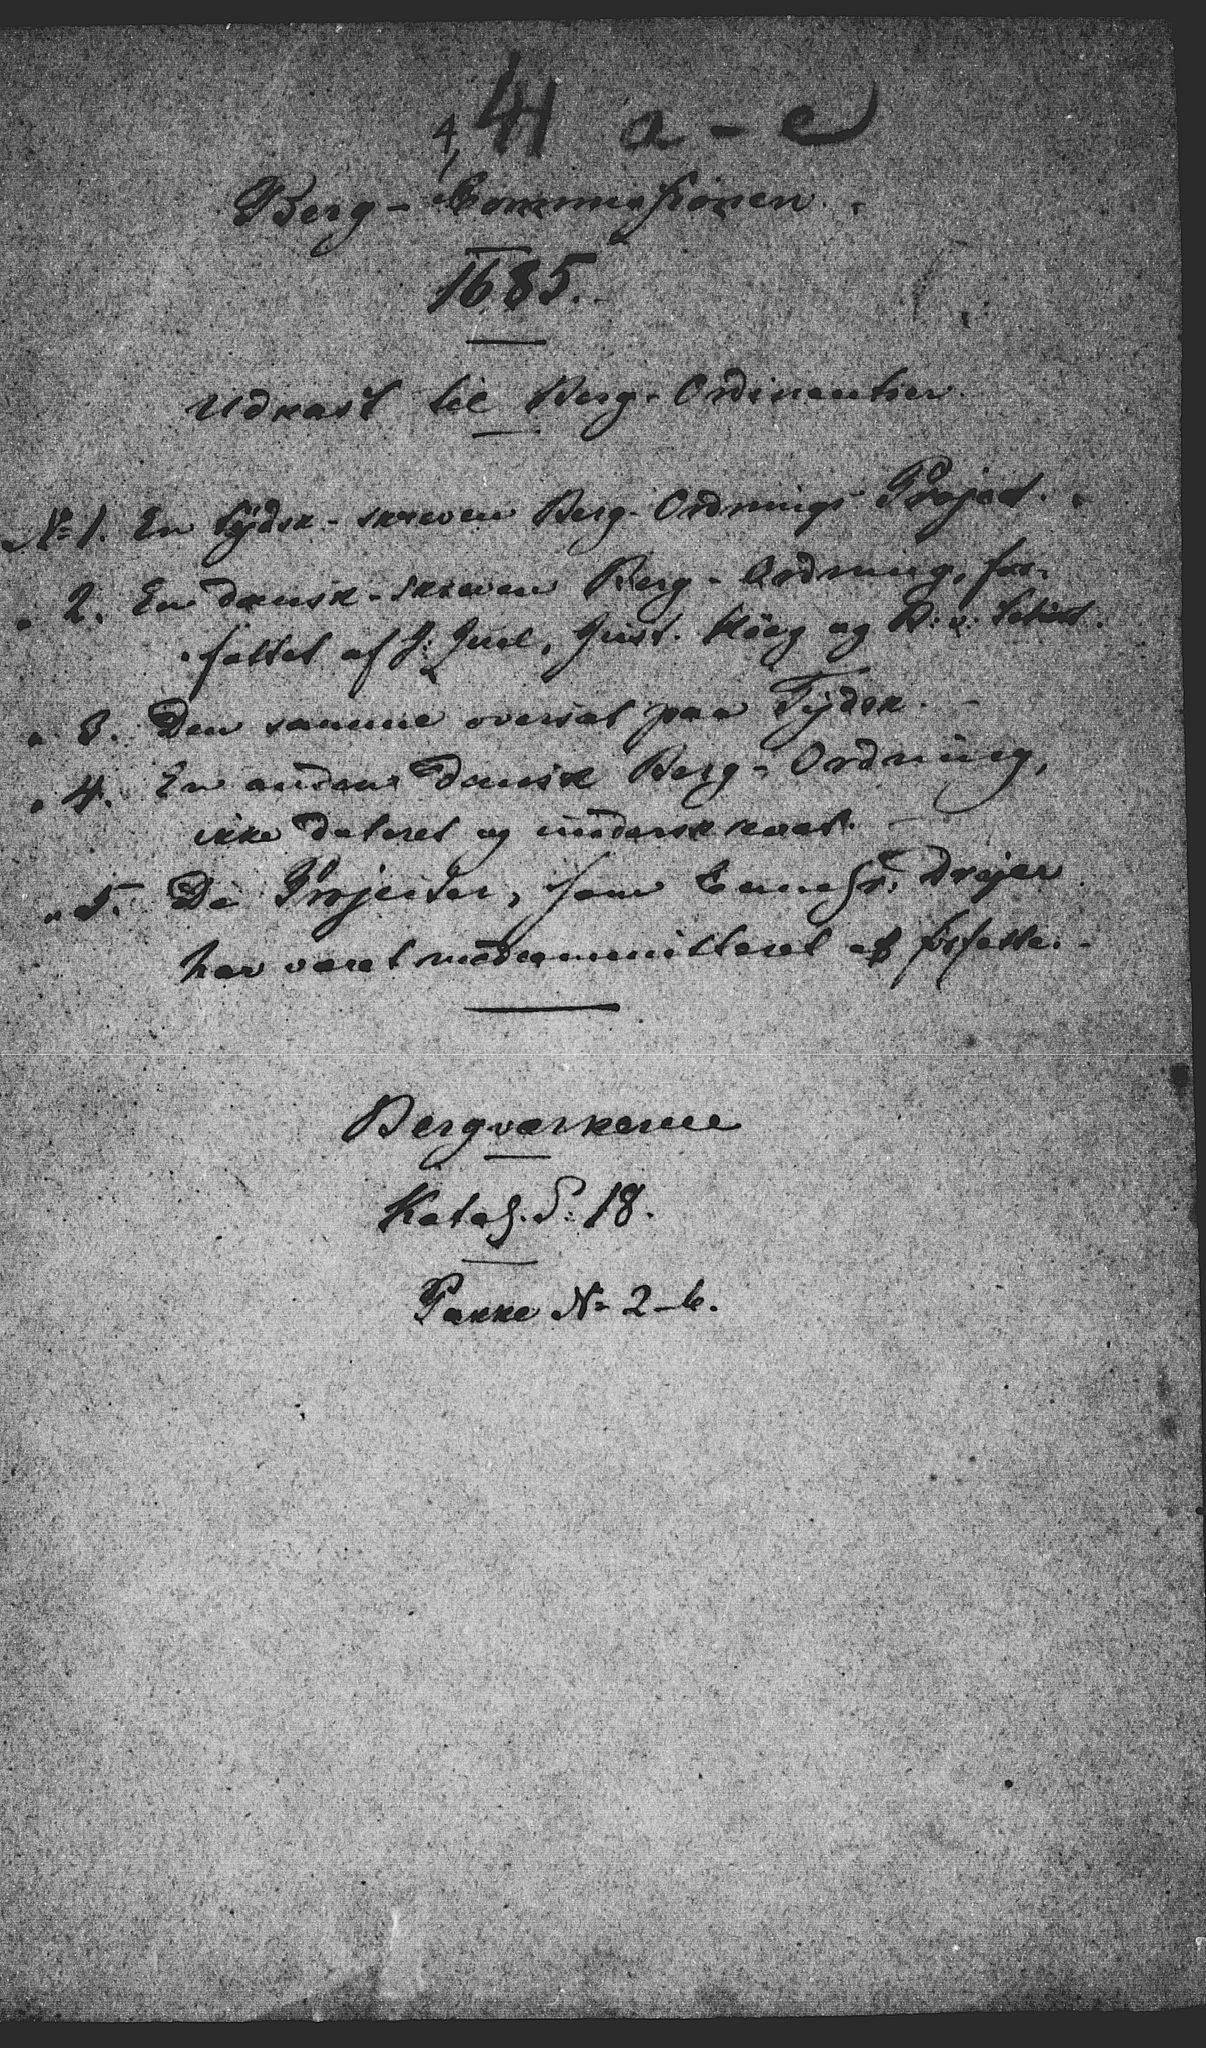 4, 41 a - e
Berg-Commissionen.
1685.
Udkast til Berg-Ordinantser
No 1. En tydsk-skreven Berg-Ordnings Project.
" 2. En dansk-skreven Berg-Ordning, for-
fattet af J: Juel, Just. Höeg og
" 3. Den samme oversat paa Tydsk.
" 4. En anden dansk Berg-Ordning,
ikke dateret og underskrevet.
" 5. De Projecter, som Dreyer
har været at forfatte.
Bergværkerne
Katal. P: 18.
Pakke No 2-b.